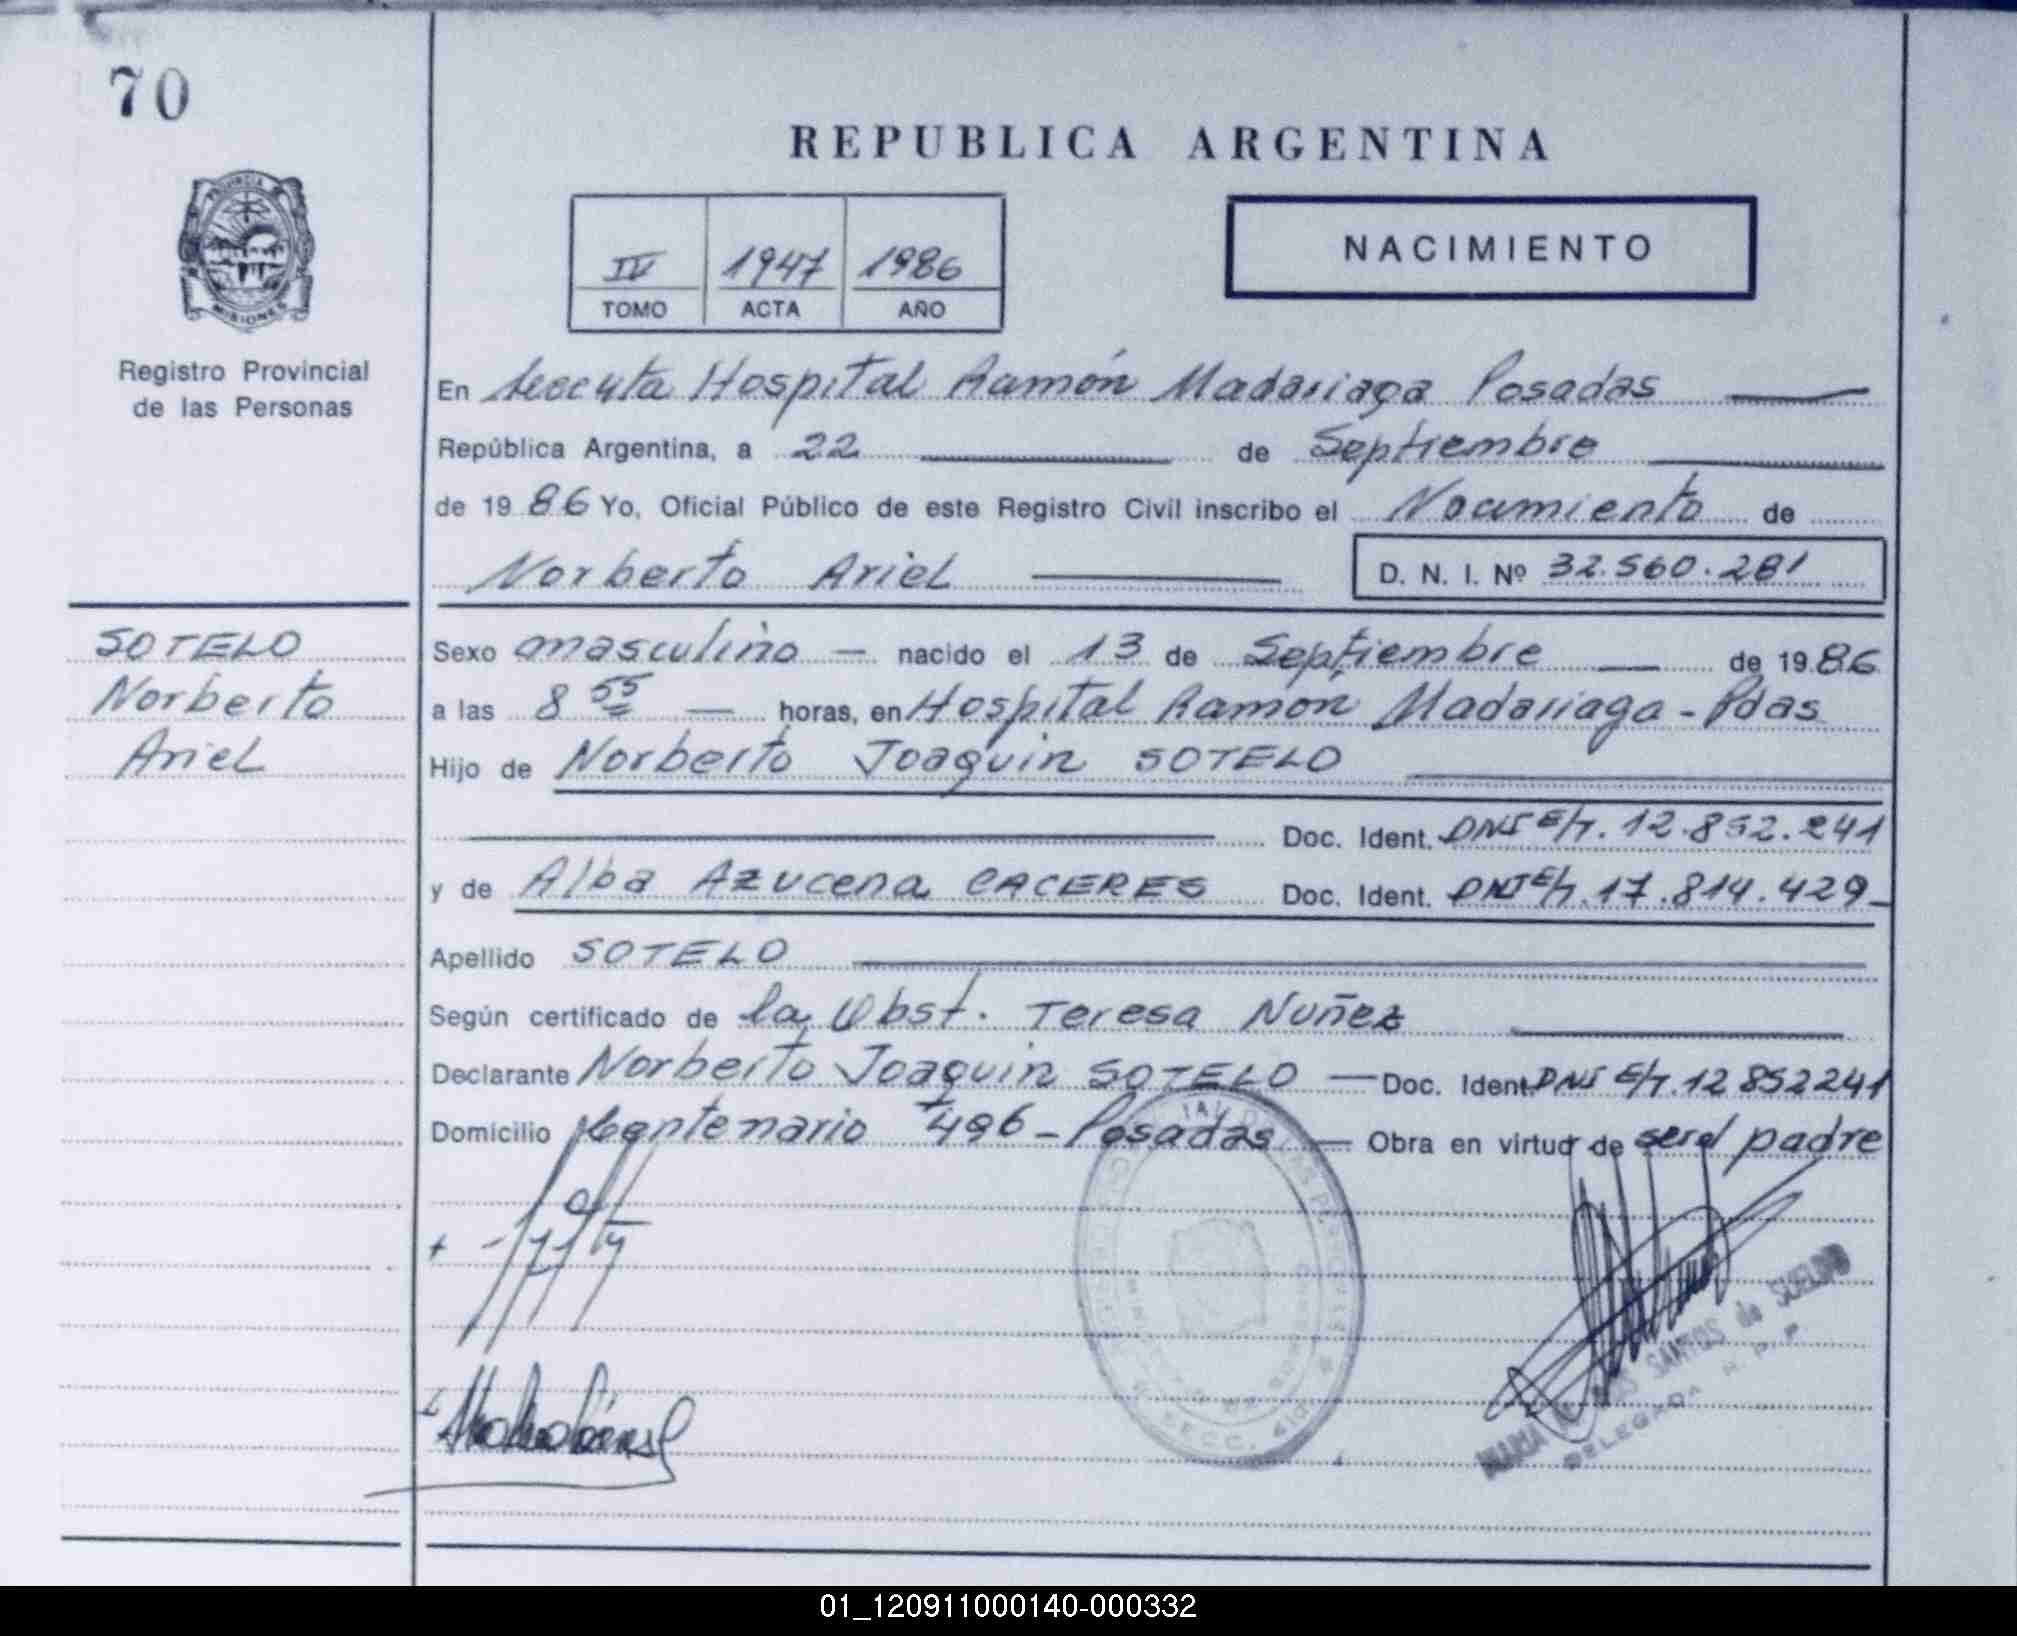 70
REPUBLICA ARGENTINA
PROVINCIA
MISIONES
Registro Provincial
de las Personas
IV 1947 1986
TOMO ACTA AÑO
NACIMIENTO
En Hospital Ramón Madariaga Posadas
República Argentina, a 22 de Septiembre
de 19 86 Yo, Oficial Público de este Registro Civil inscribo el Nacimiento de
Norberto Ariel D. N. I. Nº 32.560.281
SOTELO
Norberto
Ariel
Sexo masculino nacido el 13 de Septiembre de 19 86
a las 8 55 horas, en Hospital Ramón Madariaga - Pdas
Hijo de Norberto Joaquin SOTELO
Doc. Ident. DNI E/T. 12.852.241
y de Alba Azucena CACERES Doc. Ident. DNI E/T. 17.814.429
Apellido SOTELO
Según certificado de la Obst. Teresa Nuñez
Declarante Norberto Joaquin SOTELO Doc. Ident. DNI E/T. 12852241
Domicilio Centenario 496 - Posadas Obra en virtud de ser el padre
SECC. 4
MARIA SANTOS de
DELEGADA R. P. P.
01_120911000140-000332